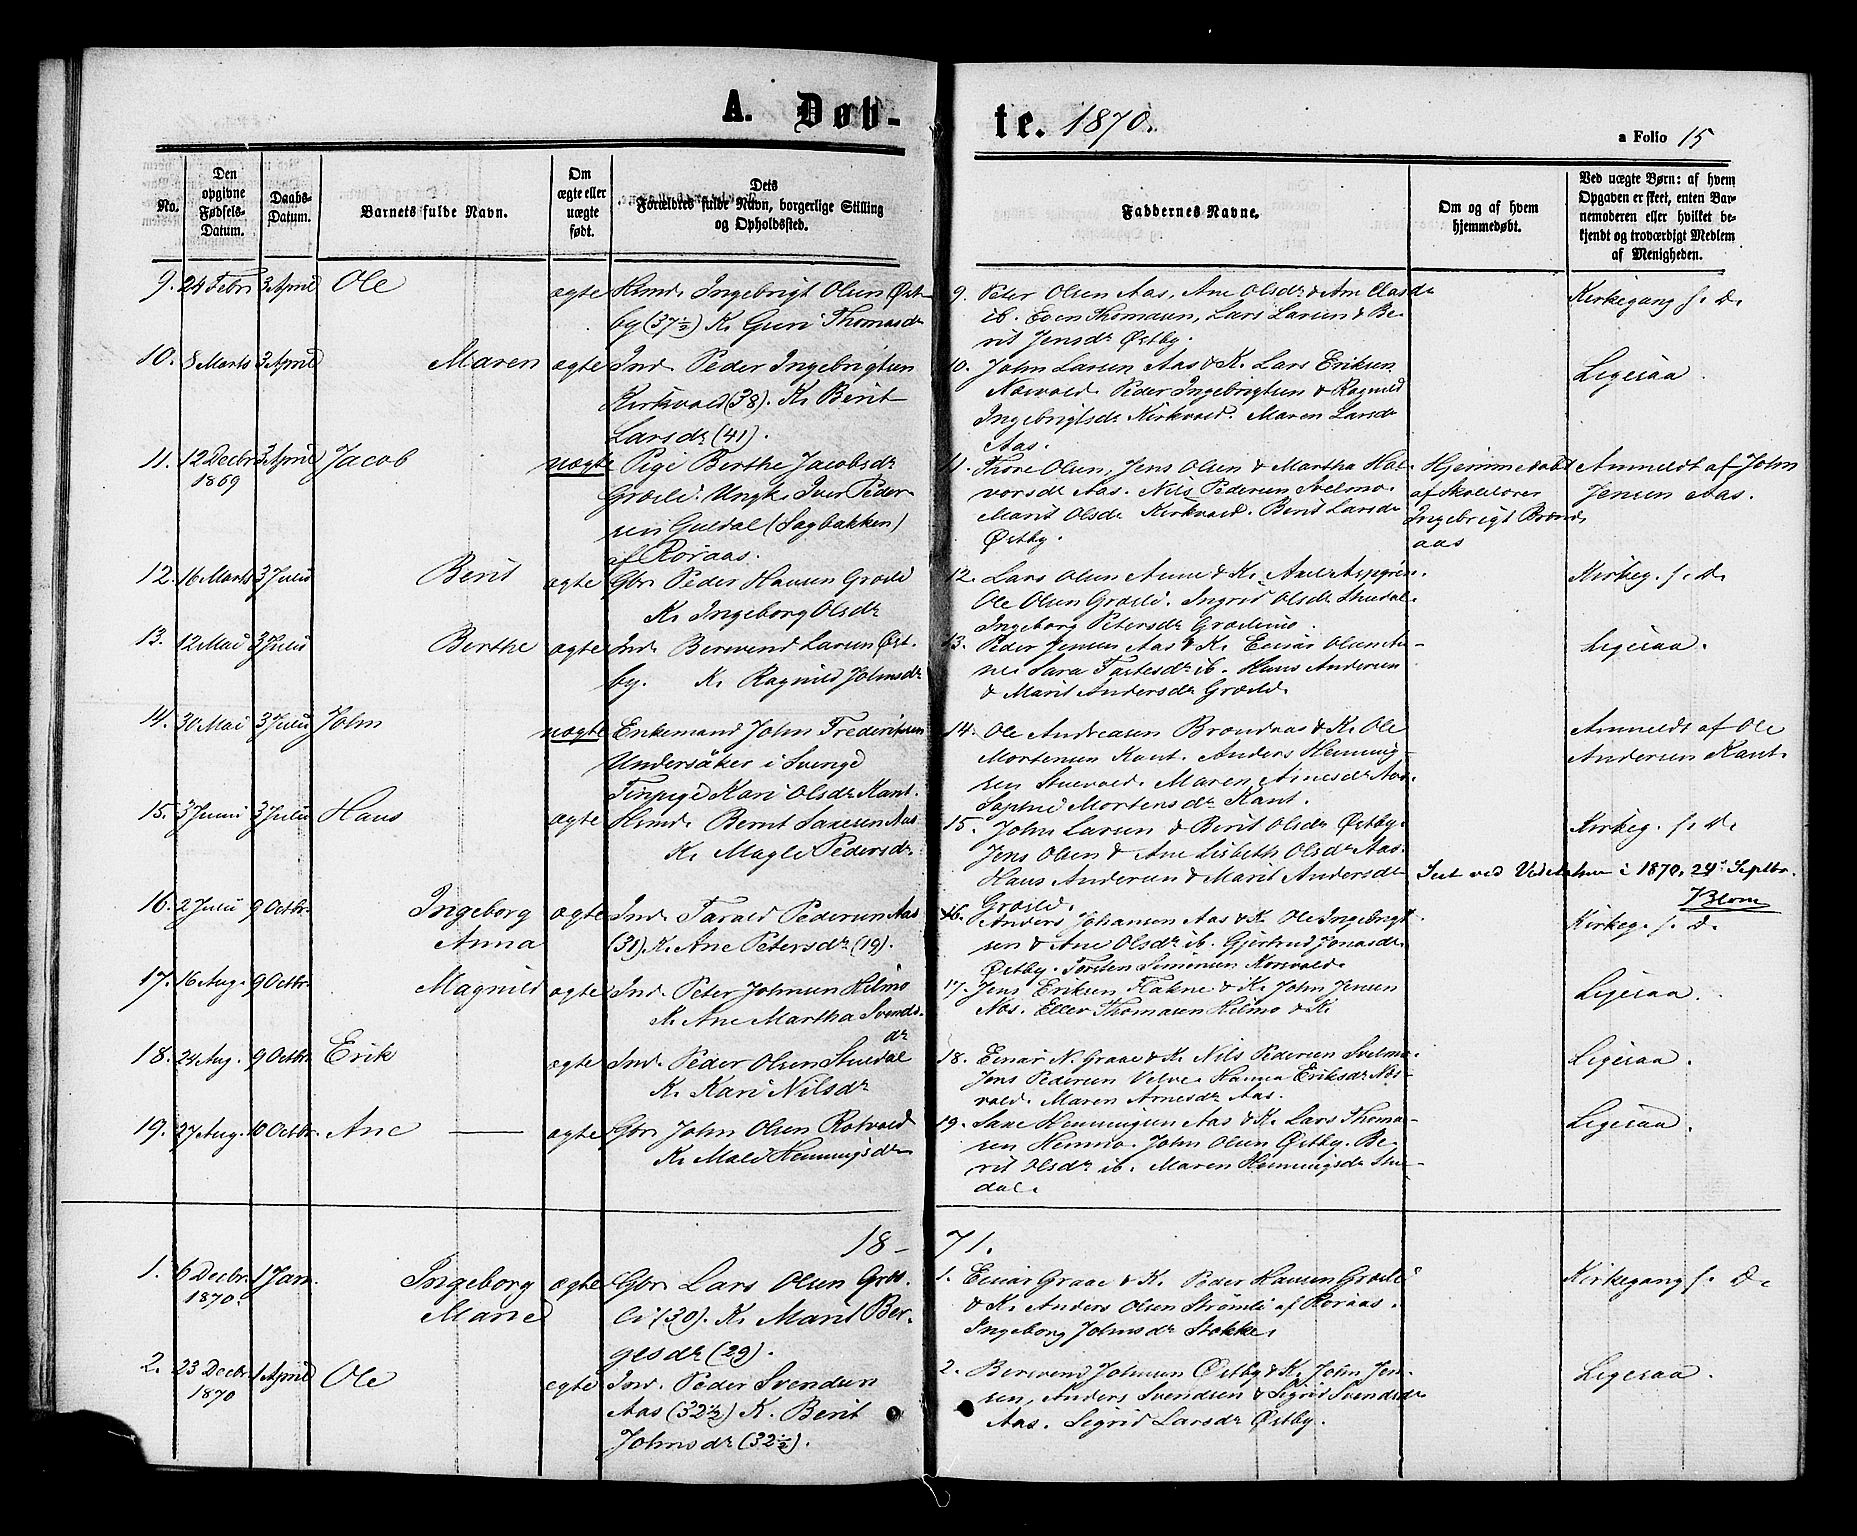 A. Døb-
te. 1870.
a Folio 15
No.
Den opgivne Fødsels-Datum.
Daabs-Datum.
Barnets fulde Navn.
Om ægte eller uægte født.
Dets Forældres fulde Navn, borgerlige Stilling og Opholdssted.
Faddernes Navne.
Om og af hvem hjemmedøbt.
Ved uægte Børn: af hvem Opgaven er skeet, enten Barnemoderen eller hvilket bekjendt og troværdigt Medlem af Menigheden.
9. 24 Febr 3 April Ole ægte Hsmd. Ingebrigt Olsen Øst-
by (37½) K. Guri Thomasdr
9. Peter Olsen Aas, Ane Olsdr & Ane Olasdr
ib. Even Thomasen, Lars Larsen & Be-
rit Jensdr Østby.
Kirkegang s. D.
10. 8 Marts 3 April Maren ægte Ind. Peder Ingebrigtsen
Kirkvold (38). K. Berit
Larsdr (41).
10. John Larsen Aas & K. Lars Eriksen
Nosvold. Peder Ingebrigtsen & Ragnild
Ingebrigtsdr Kirkvold. Maren Larsdr
Aas.
Ligesaa.
11. 12 Decbr 1869 3 April Jacob uægte Pige Berthe Jacobsdr
Græsli. Ungk. Iver Peder-
sen Guldal (Sagbakken)
af Røraas.
11. Thore Olsen, Jens Olsen & Martha Hal-
vorsdr Aas. Nils Pedersen Svelmo.
Marit Olsdr Kirkvold. Berit Larsdr
Østby.
Hjemmedøbt
af Skolelærer
Ingebrigt Brønd-
aas
Anmeldt af John
Jensen Aas.
12. 16 Marts 3 Juli Berit ægte Gbr. Peder Hansen Græsli
K. Ingeborg Olsdr
12. Lars Olsen Aune & K. Axel Aspgren.
Ole Olsen Græsli. Ingrid Olsdr Stuedal.
Ingeborg Petersdr Græslimo.
Kirkeg. s. D.
13. 12 Mai 3 Juli Berthe ægte Ind. Berevend Larsen Øst-
by. K. Ragnild Johnsdr
13. Peder Jensen Aas & K. Einar Olsen Au-
ne. Sara Tastesdr ib. Hans Andersen
& Marit Andersdr Græsli.
Ligesaa.
14. 30 Mai 3 Juli John uægte Enkemand John Frederiksen
Undersåker i Sverige
Finpige Kari Olsdr Kant.
14. Ole Andreasen Brøndaas & K. Ole
Mortensen Kant. Anders Henning-
sen Stuevold. Maren Arnesdr Aas.
Saphie Mortensdr Kant.
Anmeldt af Ole
Andersen Kant.
15. 3 Juni 3 Juli Hans ægte Hsmd. Bernt Saxesen Aas
K. Magli Pedersdr
15. John Larsen & Berit Olsdr Østby.
Jens Olsen & Ane Lisbeth Olsdr Aas.
Hans Andersen & Marit Andersdr
Græsli.
Kirkeg. s. D.
Seet ved Visitatsen i 1870, 24' Septbr.
Blom
16. 2 Juli 9 Octbr. Ingeborg
Anna ægte Ind. Farald Pedersen Aas
(31). K. Ane Petersdr (19).
16. Anders Johansen Aas & K. Ole Ingebrigt-
sen & Ane Olsdr ib. Gjertrud Jonasdr
Østby. Torsten Simensen Kosvold.
Kirkeg. s. D.
17. 16 Aug. 9 Octbr. Magnild ægte Ind. Peter Johnsen Hilmo
K. Ane Martha Svends-
dr
17. Jens Eriksen Flakne & K. John Jensen
Nos. Eller Thomasen Hilmo & K.
Ligesaa.
18. 24 Aug. 9 Octbr. Erik ægte Ind. Peder Olsen Stuedal
K. Kari Nilsdr
18. Einar N. Graae & K. Nils Pedersen Svelmo.
Jens Pedersen Velve. Hanna Eriksdr Nos-
vold. Maren Arnesdr Aas.
Ligesaa.
19. 27 Aug. 10 Octbr. Ane — ægte Gbr. John Olsen Rotvold
K. Mali Henningsdr
19. Saxe Henningsen Aas & K. Lars Thoma-
sen Hemmo. John Olsen Østby. Be-
rit Olsdr ib. Maren Henningsdr Stue-
dal.
Ligesaa.
18-71.
1. 6 Decbr. 1870. 1 Jan. Ingeborg
Marie ægte Gbr. Lars Olsen Græs-
li (30). K. Marit Ber-
gesdr (29).
1. Einar Graae & K. Peder Hansen Græsli
& K. Anders Olsen Strømli af Røraas.
Ingeborg Johnsdr Stokke.
Kirkegang s. D.
2. 23 Decbr 1870 1 April Ole ægte Ind. Peder Svendsen
Aas (32½) K. Berit
Johnsdr (32½).
2. Berevend Johnsen Østby & K. John Jen-
sen, Anders Svendsen & Sigrid Svendsdr
Aas. Sigrid Larsdr Østby.
Ligesaa.